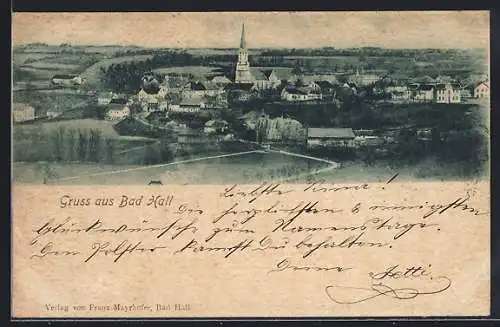 Gruss aus Bad Hall
Liebste Anna!
Die herzlichsten & innigsten
Glückwünsche zum Namenstage.
Den Polster kannst Du behalten.
Deine Netti
Verlag von Franz Mayrhofer, Bad Hall